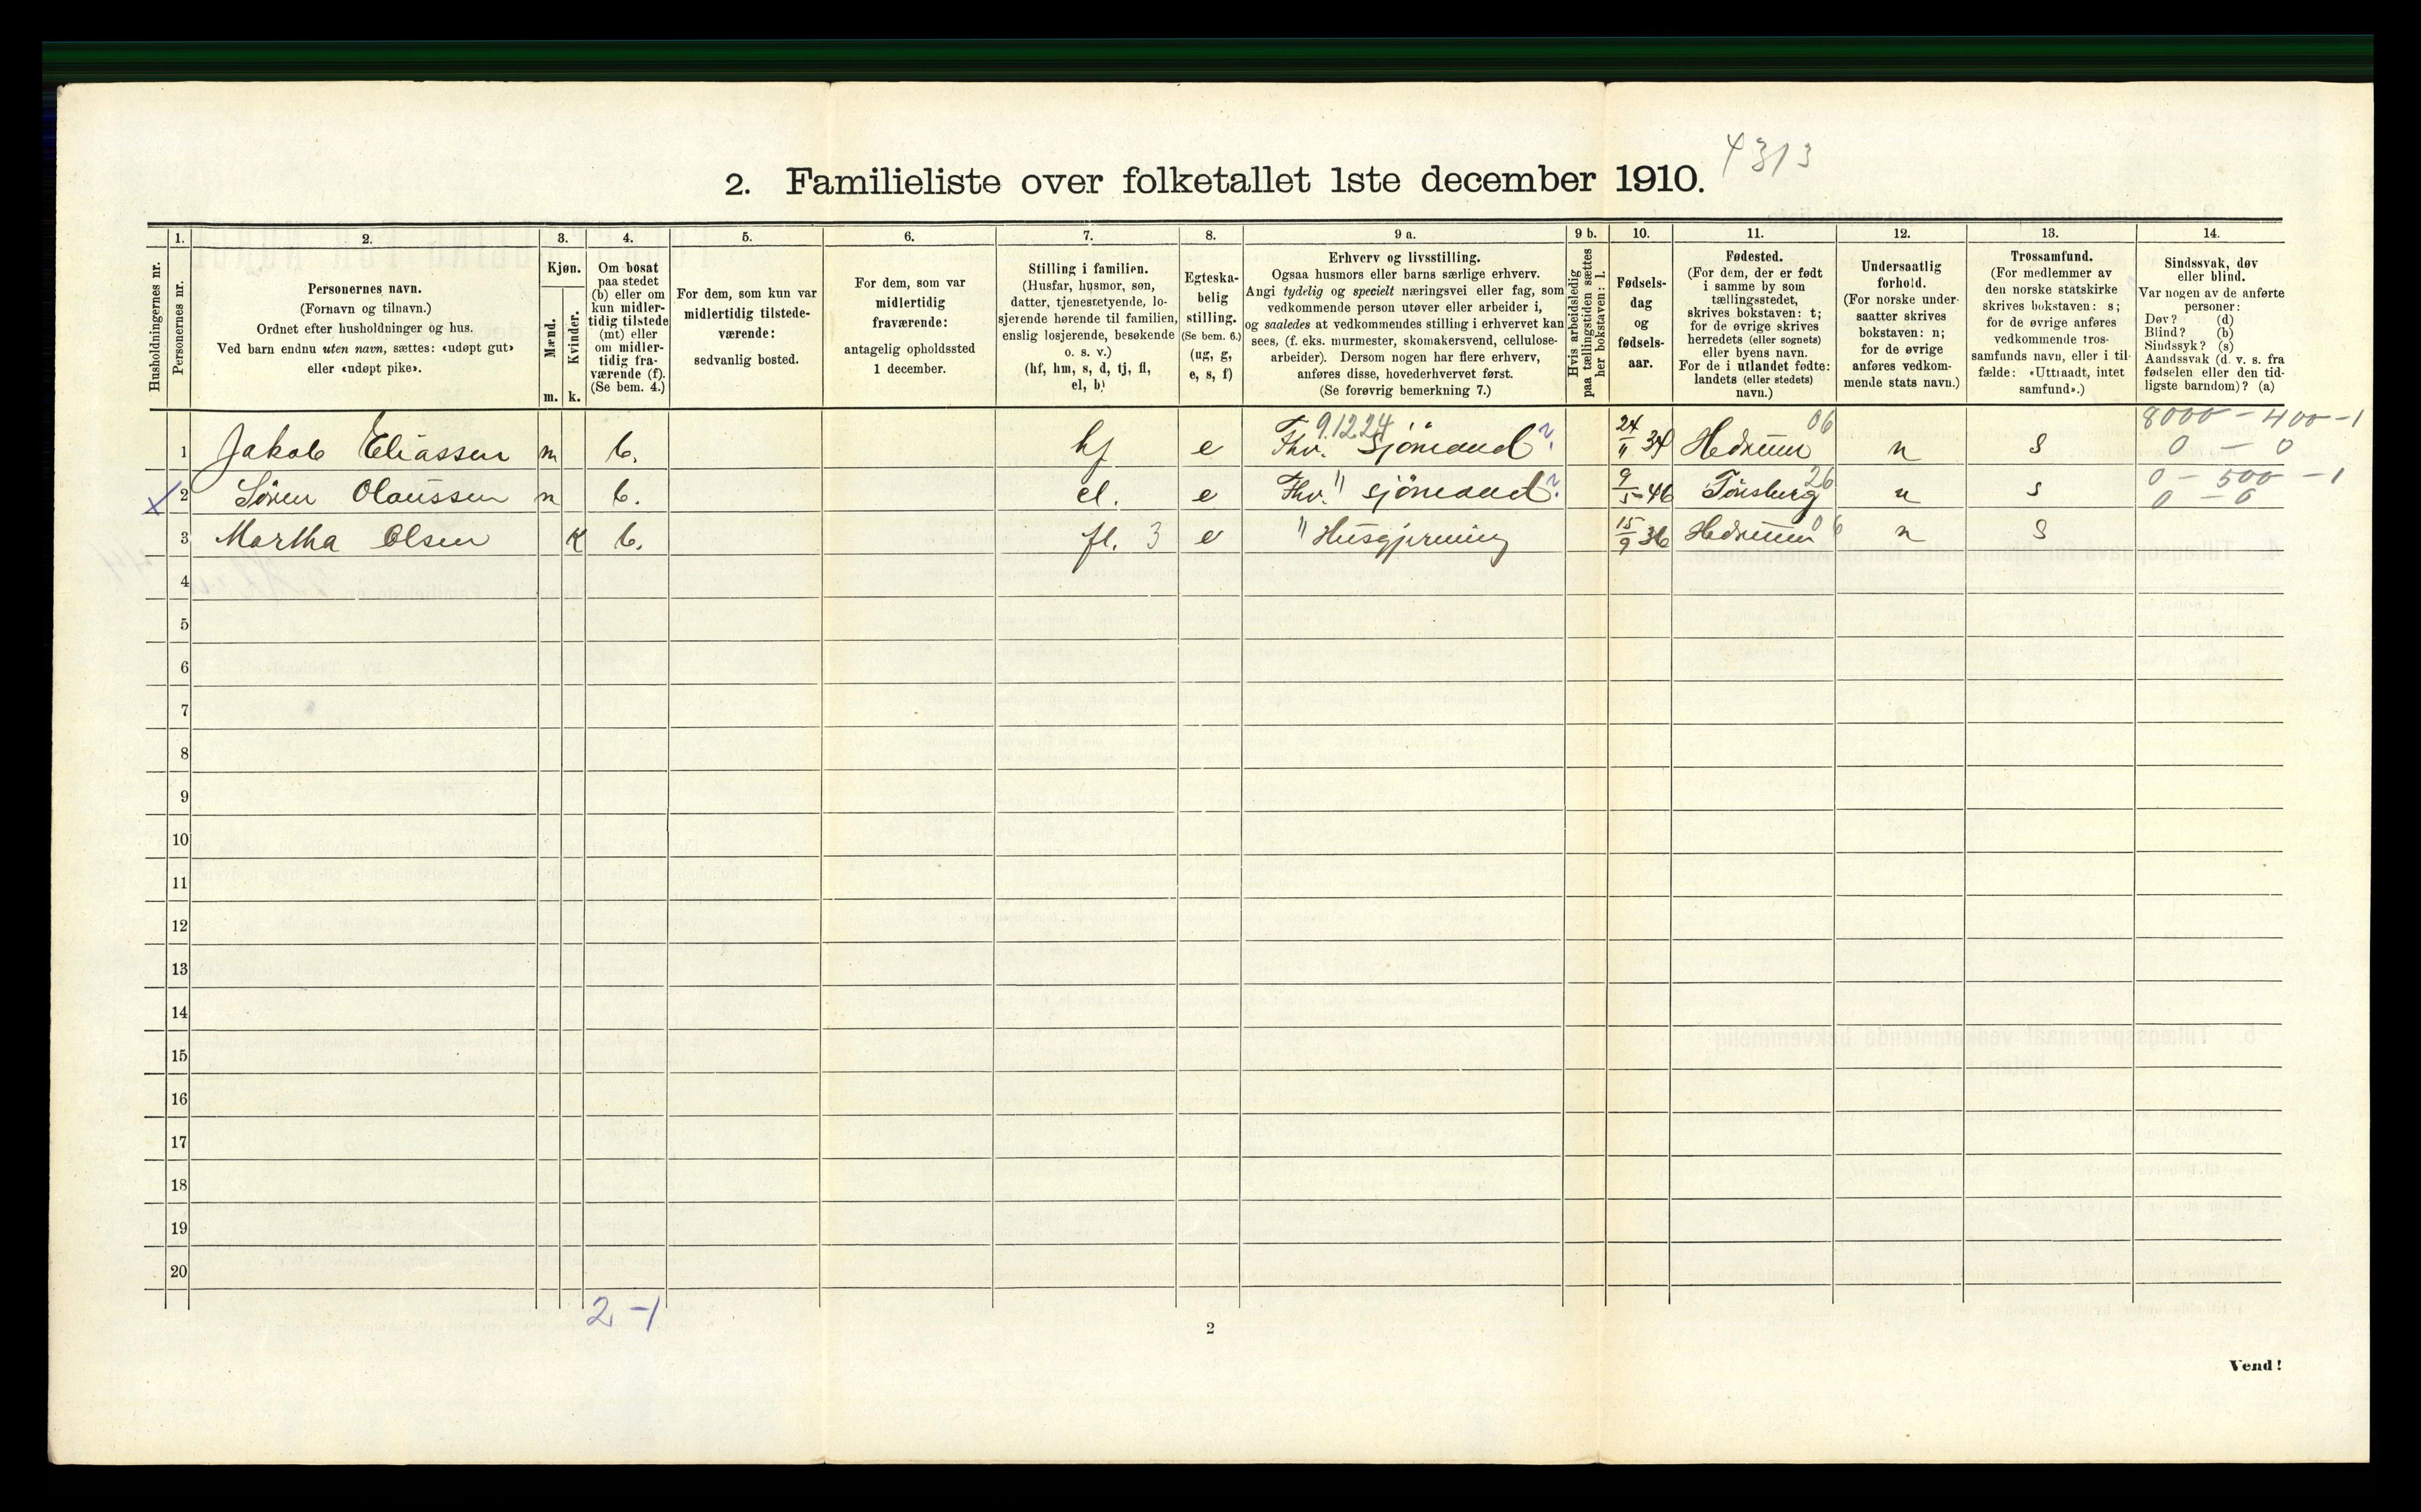 4313
2. Familieliste over folketallet 1ste december 1910.
Husholdningernes nr.
1.
Personernes nr.
2.
Personernes navn.
(Fornavn og tilnavn.)
Ordnet efter husholdninger og hus.
Ved barn endnu uten navn, sættes: «udøpt gut»
eller «udøpt pike».
3.
Kjøn.
Mænd.
Kvinder.
m. k.
4.
Om bosat
paa stedet
(b) eller om
kun midler-
tidig tilstede
(mt) eller
om midler-
tidig fra-
værende (f).
(Se bem. 4.)
5.
For dem, som kun var
midlertidig tilstede-
værende:
sedvanlig bosted.
6.
For dem, som var
midlertidig
fraværende:
antagelig opholdssted
1 december.
7.
Stilling i familien.
(Husfar, husmor, søn,
datter, tjenestetyende, lo-
sjerende hørende til familien,
enslig losjerende, besøkende
o. s. v.)
(hf, hm, s, d, tj, fl,
el, b)
8.
Egteska-
belig
stilling.
(Se bem. 6.)
(ug, g,
e, s, f)
9 a.
Erhverv og livsstilling.
Ogsaa husmors eller barns særlige erhverv.
Angi tydelig og specielt næringsvei eller fag, som
vedkommende person utøver eller arbeider i,
og saaledes at vedkommendes stilling i erhvervet kan
sees, (f. eks. murmester, skomakersvend, cellulose-
arbeider). Dersom nogen har flere erhverv,
anføres disse, hovederhvervet først.
(Se forøvrig bemerkning 7.)
9 b.
Hvis arbeidsledig
paa tællingstiden sættes
her bokstaven: l.
10.
Fødsels-
dag
og
fødsels-
aar.
11.
Fødested.
(For dem, der er født
i samme by som
tællingsstedet,
skrives bokstaven: t;
for de øvrige skrives
herredets (eller sognets)
eller byens navn.
For de i utlandet fødte:
landets (eller stedets)
navn.)
12.
Undersaatlig
forhold.
(For norske under-
saatter skrives
bokstaven: n;
for de øvrige
anføres vedkom-
mende stats navn.)
13.
Trossamfund.
(For medlemmer av
den norske statskirke
skrives bokstaven: s;
for de øvrige anføres
vedkommende tros-
samfunds navn, eller i til-
fælde: «Uttraadt, intet
samfund».)
14.
Sindssvak, døv
eller blind.
Var nogen av de anførte
personer:
Døv? (d)
Blind? (b)
Sindssyk? (s)
Aandssvak (d. v. s. fra
fødselen eller den tid-
ligste barndom)? (a)
91224 06 8000 - 400 - 1
1 Jakob Eliassen m b. hf e Fhv. Sjömand ? 24/11 34 Hedrum n s 0 - 0
26 0 - 500 - 1
X 2 Sören Olaussen m b. el. e Fhv. " sjömand ? 9/5 46 Tönsberg n s 0 - 0
3 Martha Olsen K b. fl. 3 e " Husgjerning 15/9 36 Hedrum 06 n s
4
5
6
7
8
9
10
11
12
13
14
15
16
17
18
19
20
2 - 1
2
Vend!